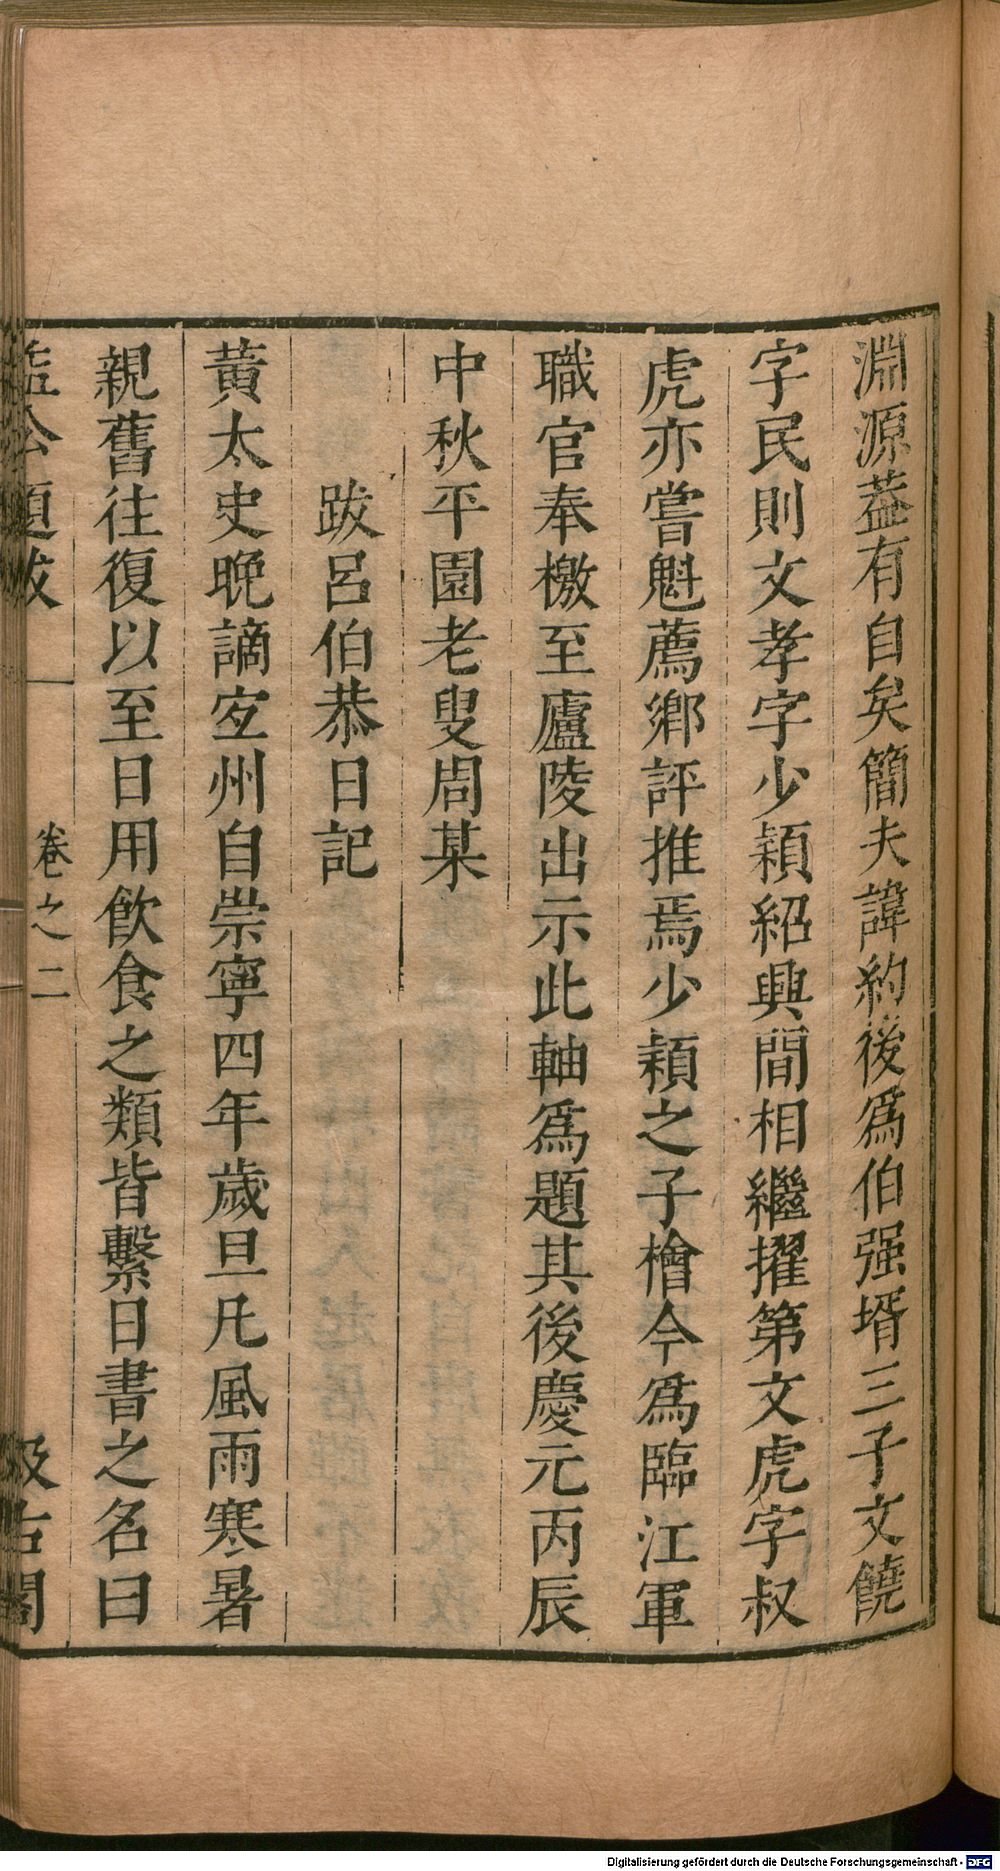 淵源葢有自矣簡夫諱約後爲伯强壻三子文饒
字民則文孝字少穎紹興間相繼擢第文虎字叔
虎亦嘗魁薦鄉評推焉少穎之子子檜今爲臨江軍
職官奉檄至廬陵出示此軸爲題其後慶元丙辰
中秋平園老叟周某
跋呂伯恭日記
黃太史晚謫宐州自崇寧四年歲旦凡風雨寒暑
親舊往復以至日用飲食之類皆繫日書之名曰
益公題跋 卷之二 汲古閣
Digitalisierung gefördert durch die Deutsche Forschungsgemeinschaft - DFG